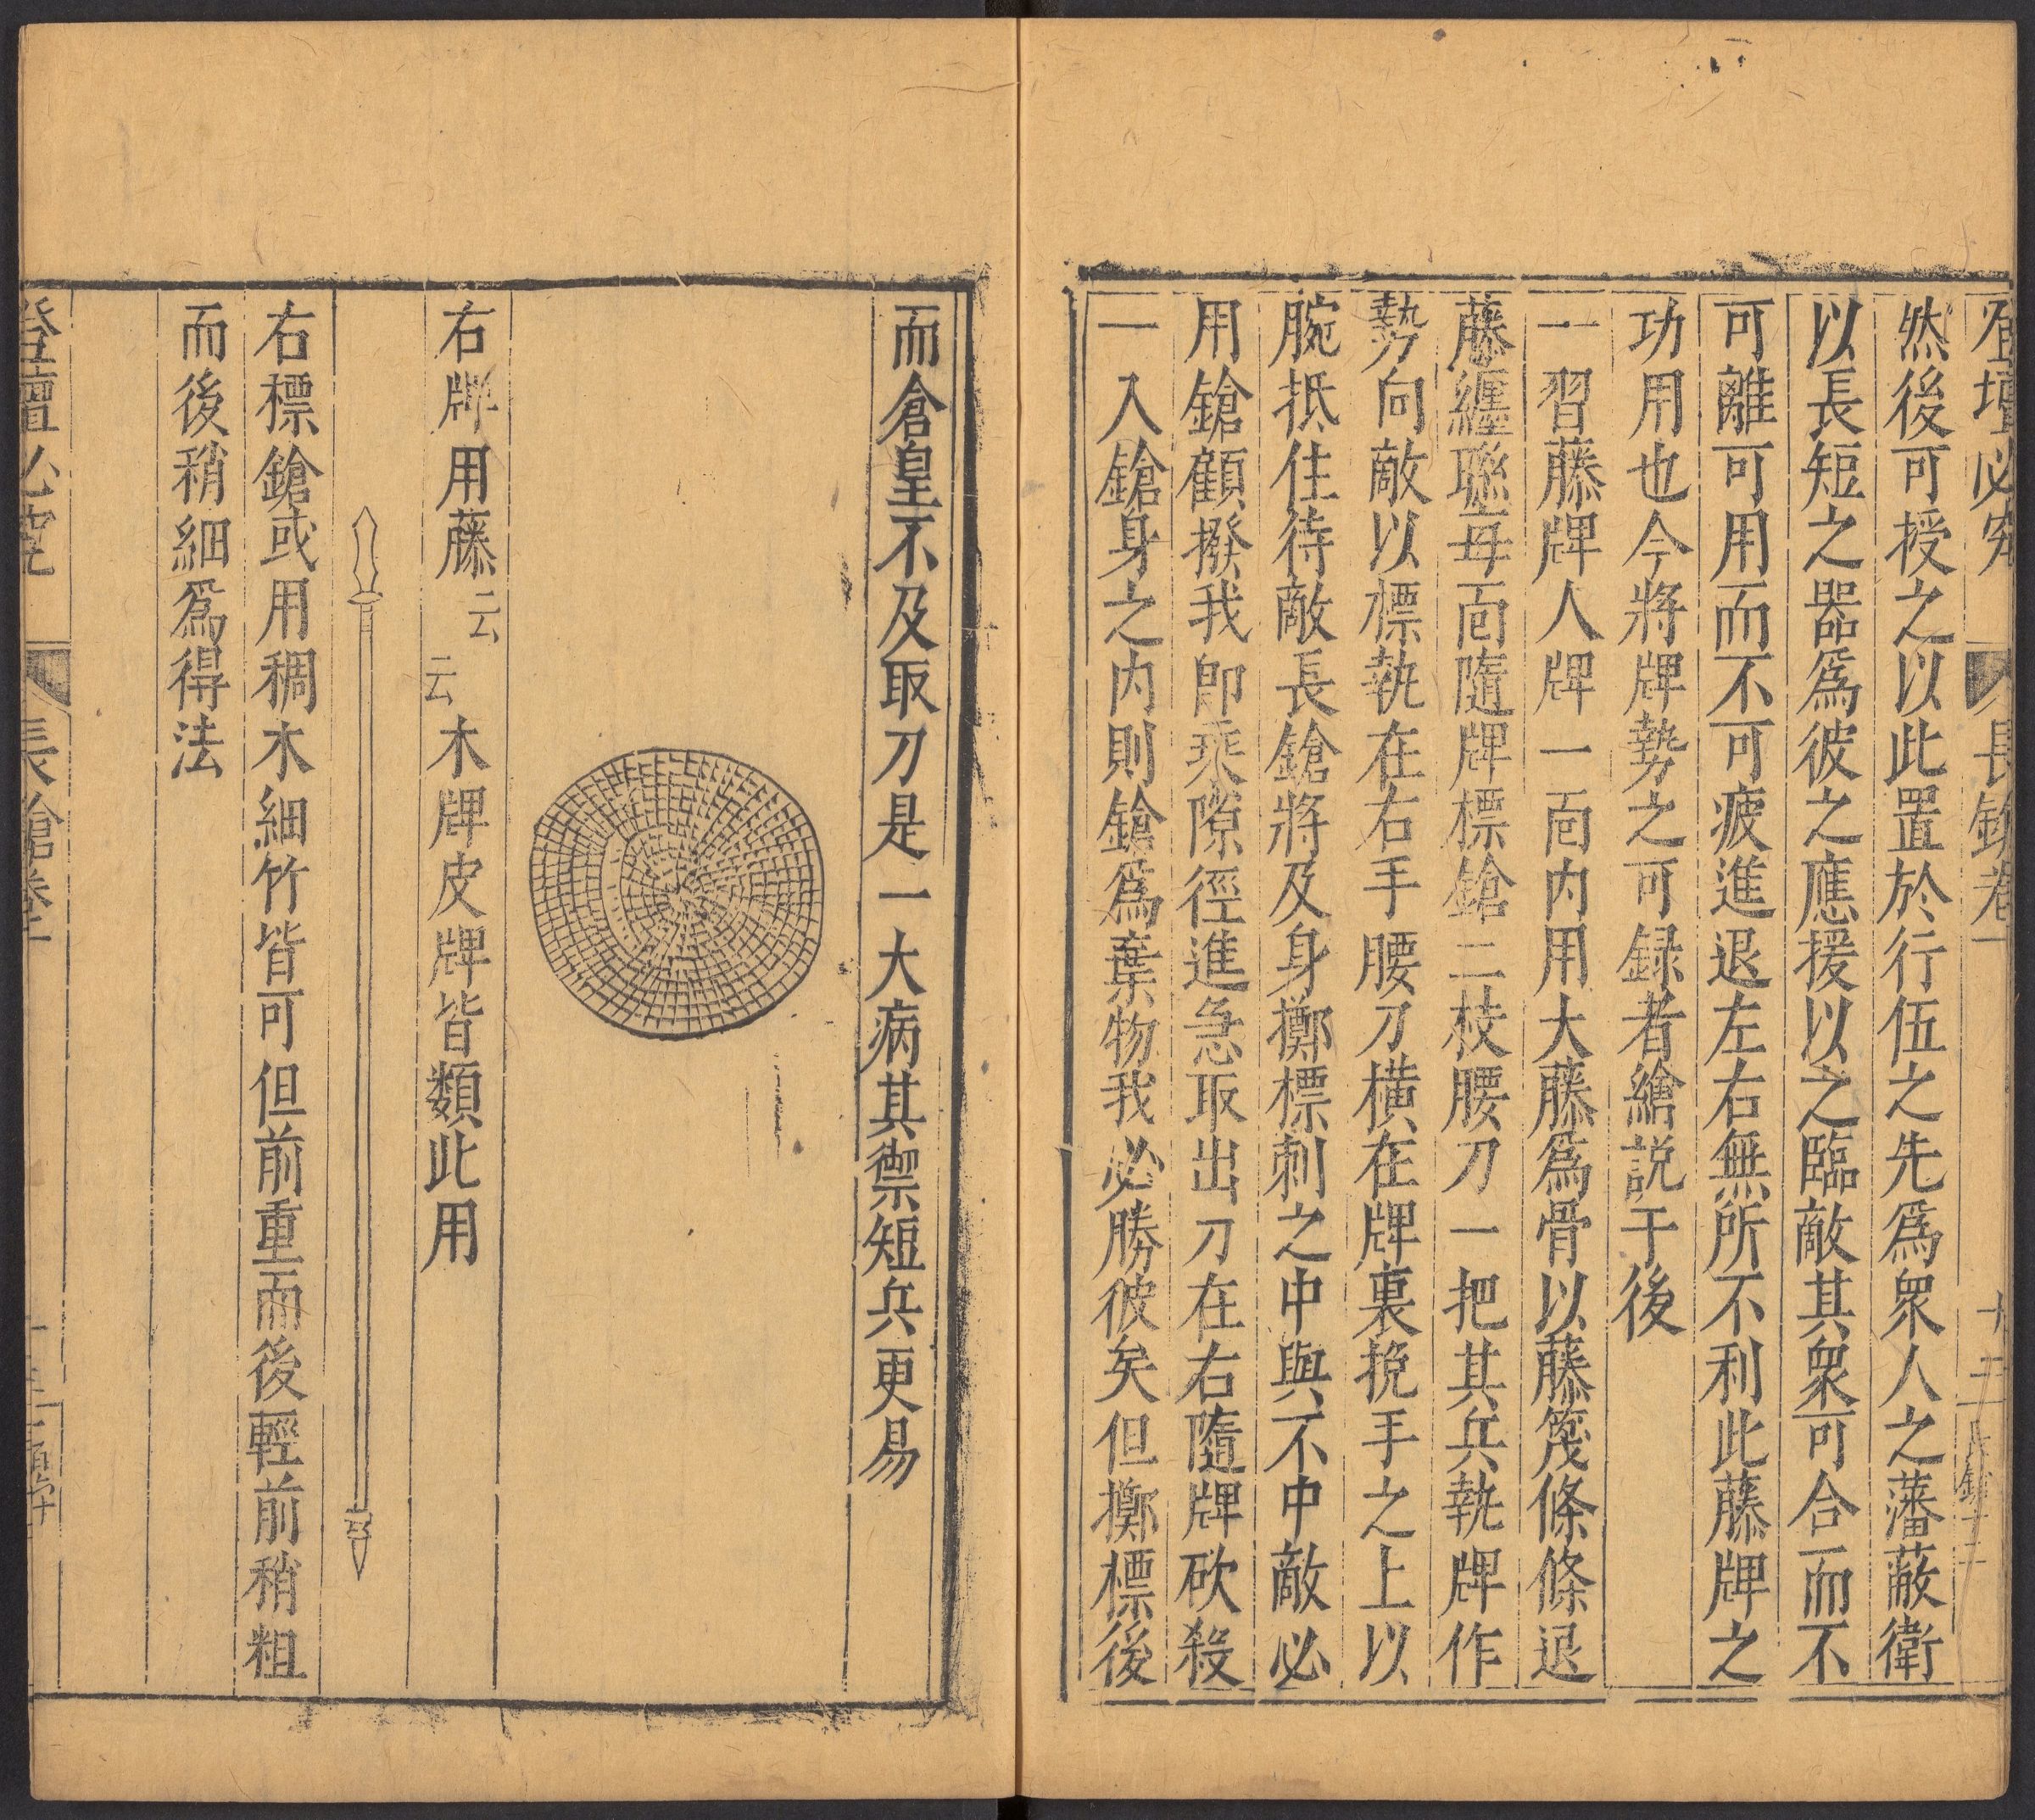 登壇必究 長鎗卷 十二
然後可授之以此置於行伍之先爲衆人之藩蔽衛
以長短之器爲彼之應援以之臨敵其衆可合而不
可離可用而不可疲進退左右無所不利此藤牌之
功用也今將牌勢之可録者繪説于後
一習藤牌人牌一靣内用大藤爲骨以藤篾條條退
藤纏聮毎靣隨牌標鎗二枝腰刀一把其兵執牌作
勢向敵以標執在右手腰刀橫在牌裏挽手之上以
腕抵住待敵長鎗將及身擲標刺之中與不中敵必
用鎗顧撥我卽乘隙徑進急取出刀在右隨牌砍殺
一入鎗身之内則鎗爲棄物我必勝彼矣但擲標後
而倉皇不及取刀是一大病其禦短兵更易
右牌用藤云云木牌皮牌皆類此用
右標鎗或用稠木細竹皆可但前重而後輕前稍粗
而後稍細爲得法
登壇必究 長鎗卷